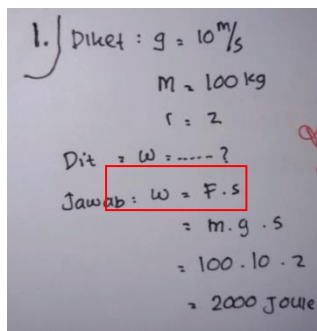 1. Diket : g = 10 m/s
m = 100 kg
r = 2
Dit = W = ..... ?
Jawab : W = F . s
= m . g . s
= 100 . 10 . 2
= 2000 Joule